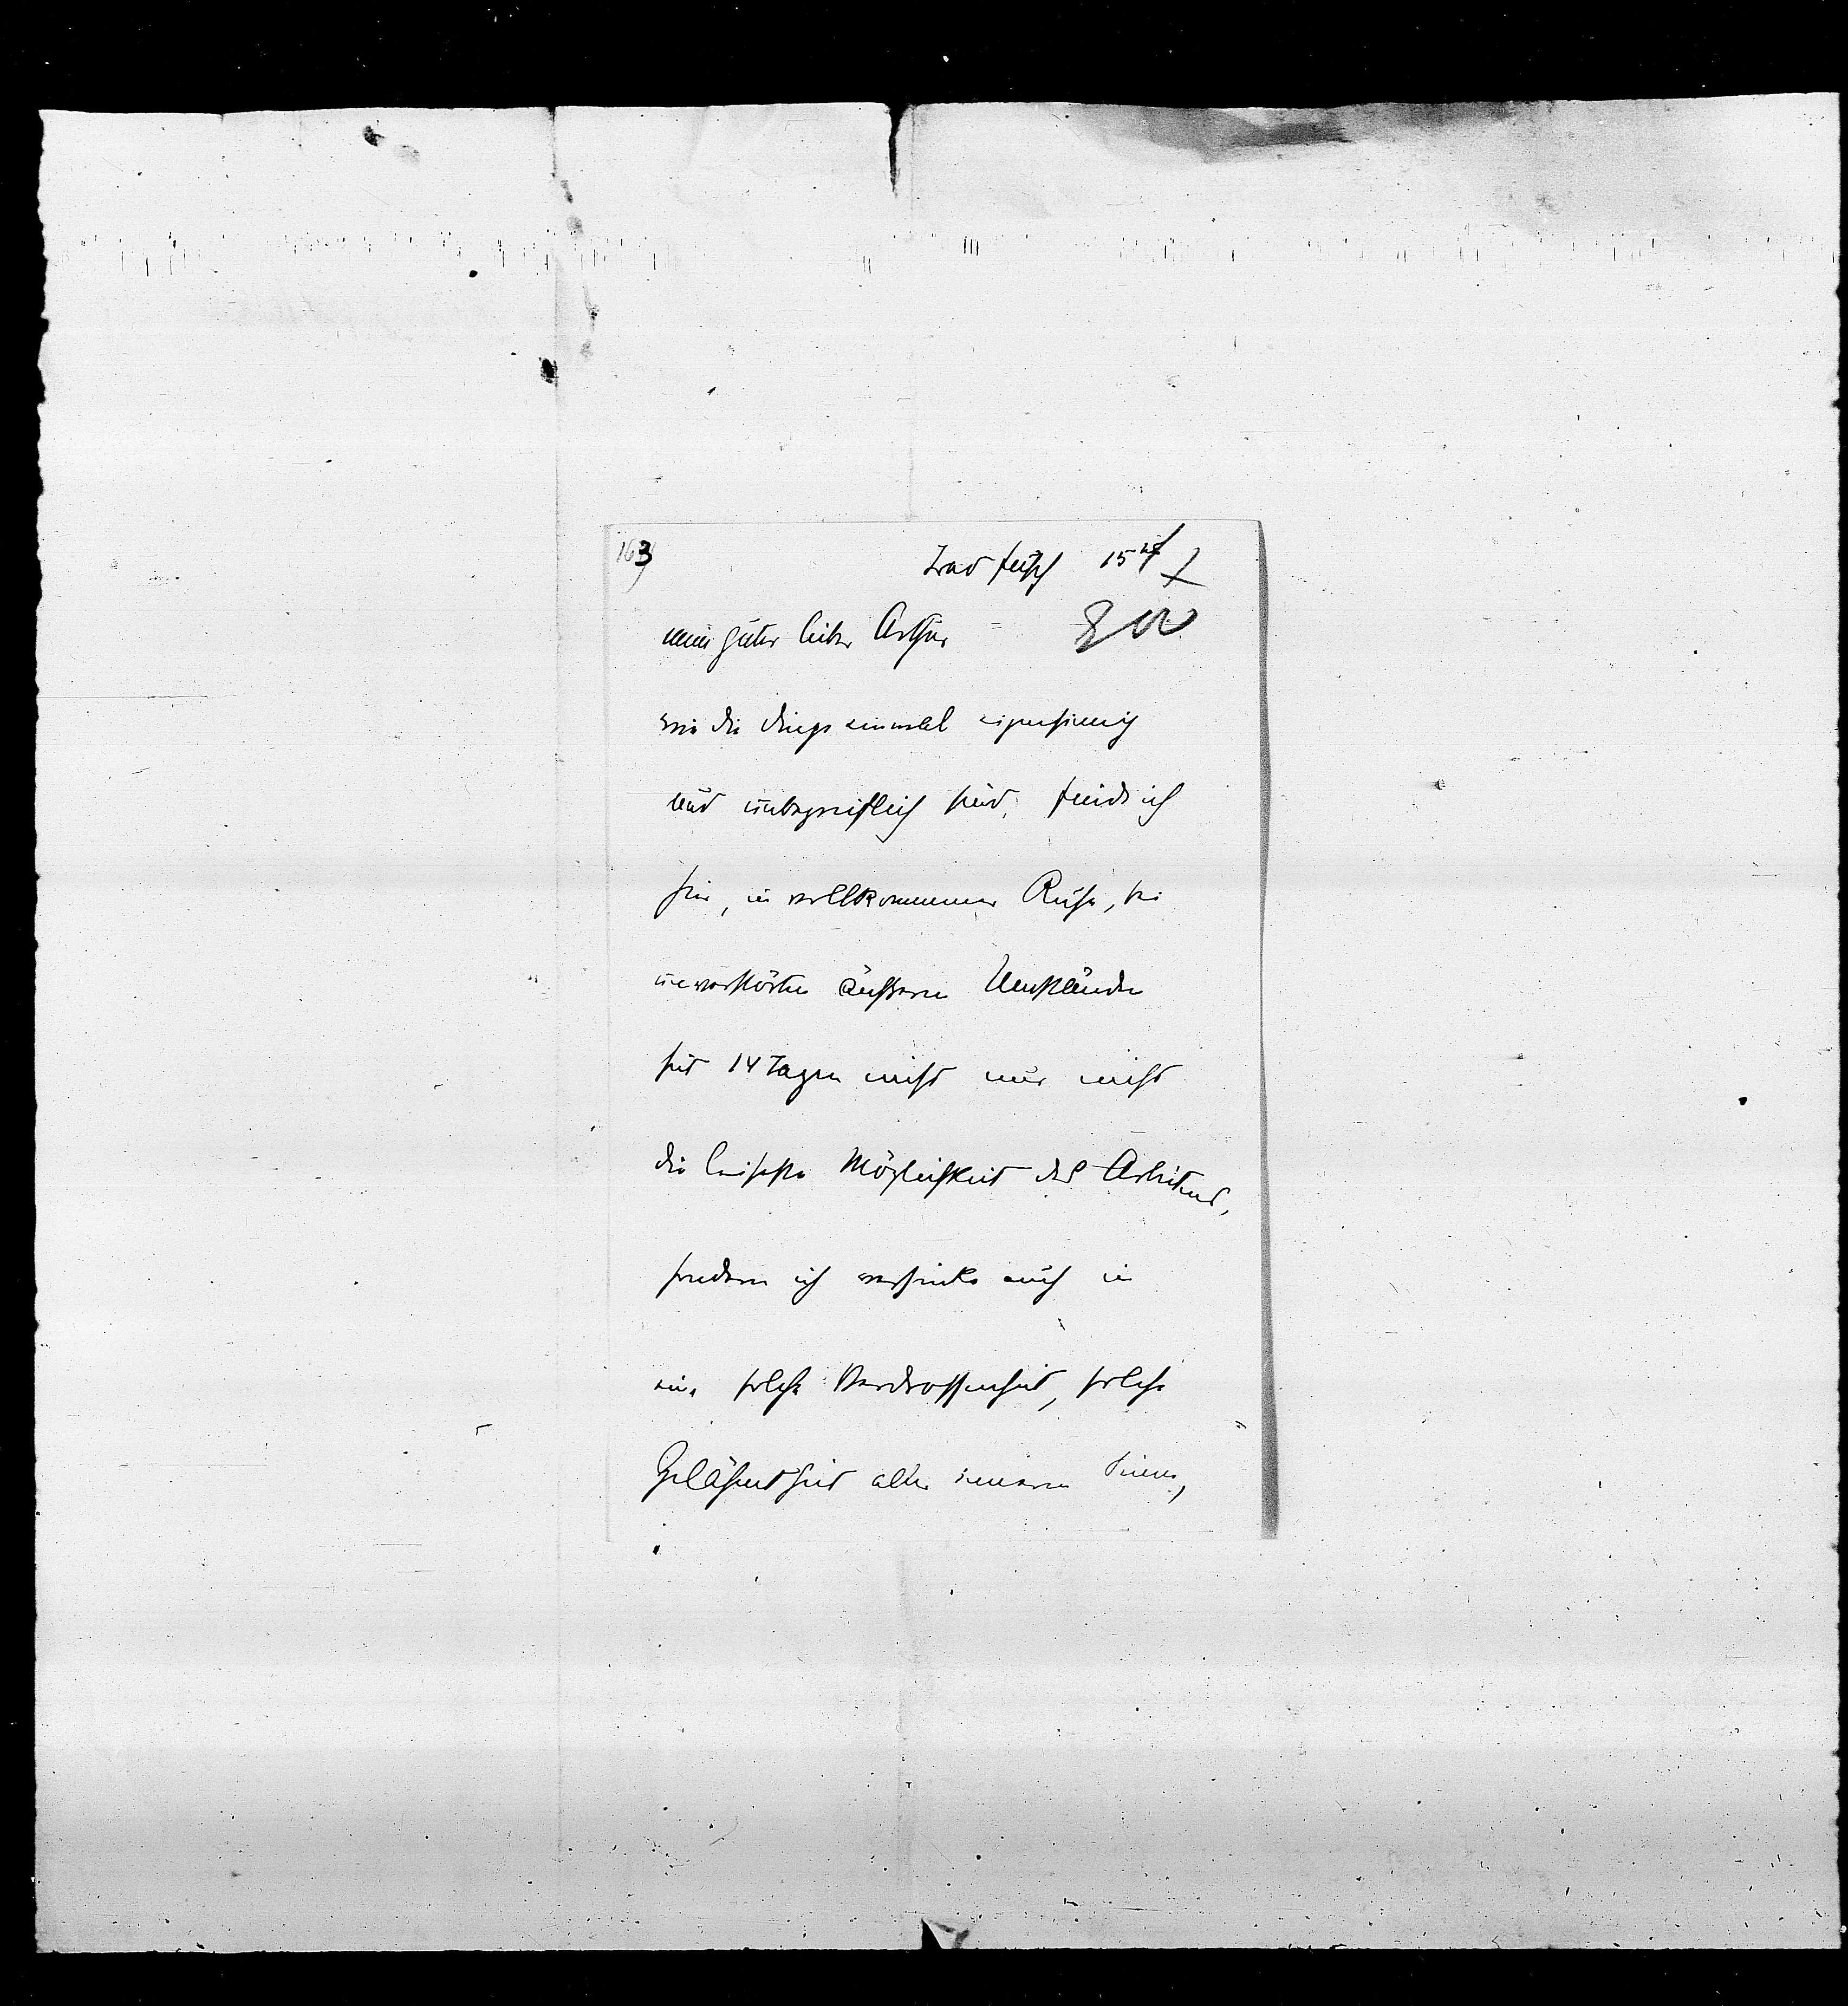 163
Bad Fusch 15ten
mein guter lieber Arthur
wie die Dinge einmal eigensinnig
und unbegreiflich sind, finde ich
hier, in vollkommener Ruhe, bei
unverstörten äußeren Umständen
seit 14 Tagen nicht nur nicht
die leiseste Möglichkeit des Arbeitens,
sondern ich versinke auch in
eine solche Verdrossenheit, solche
Gelähmtheit aller inneren Sinne,